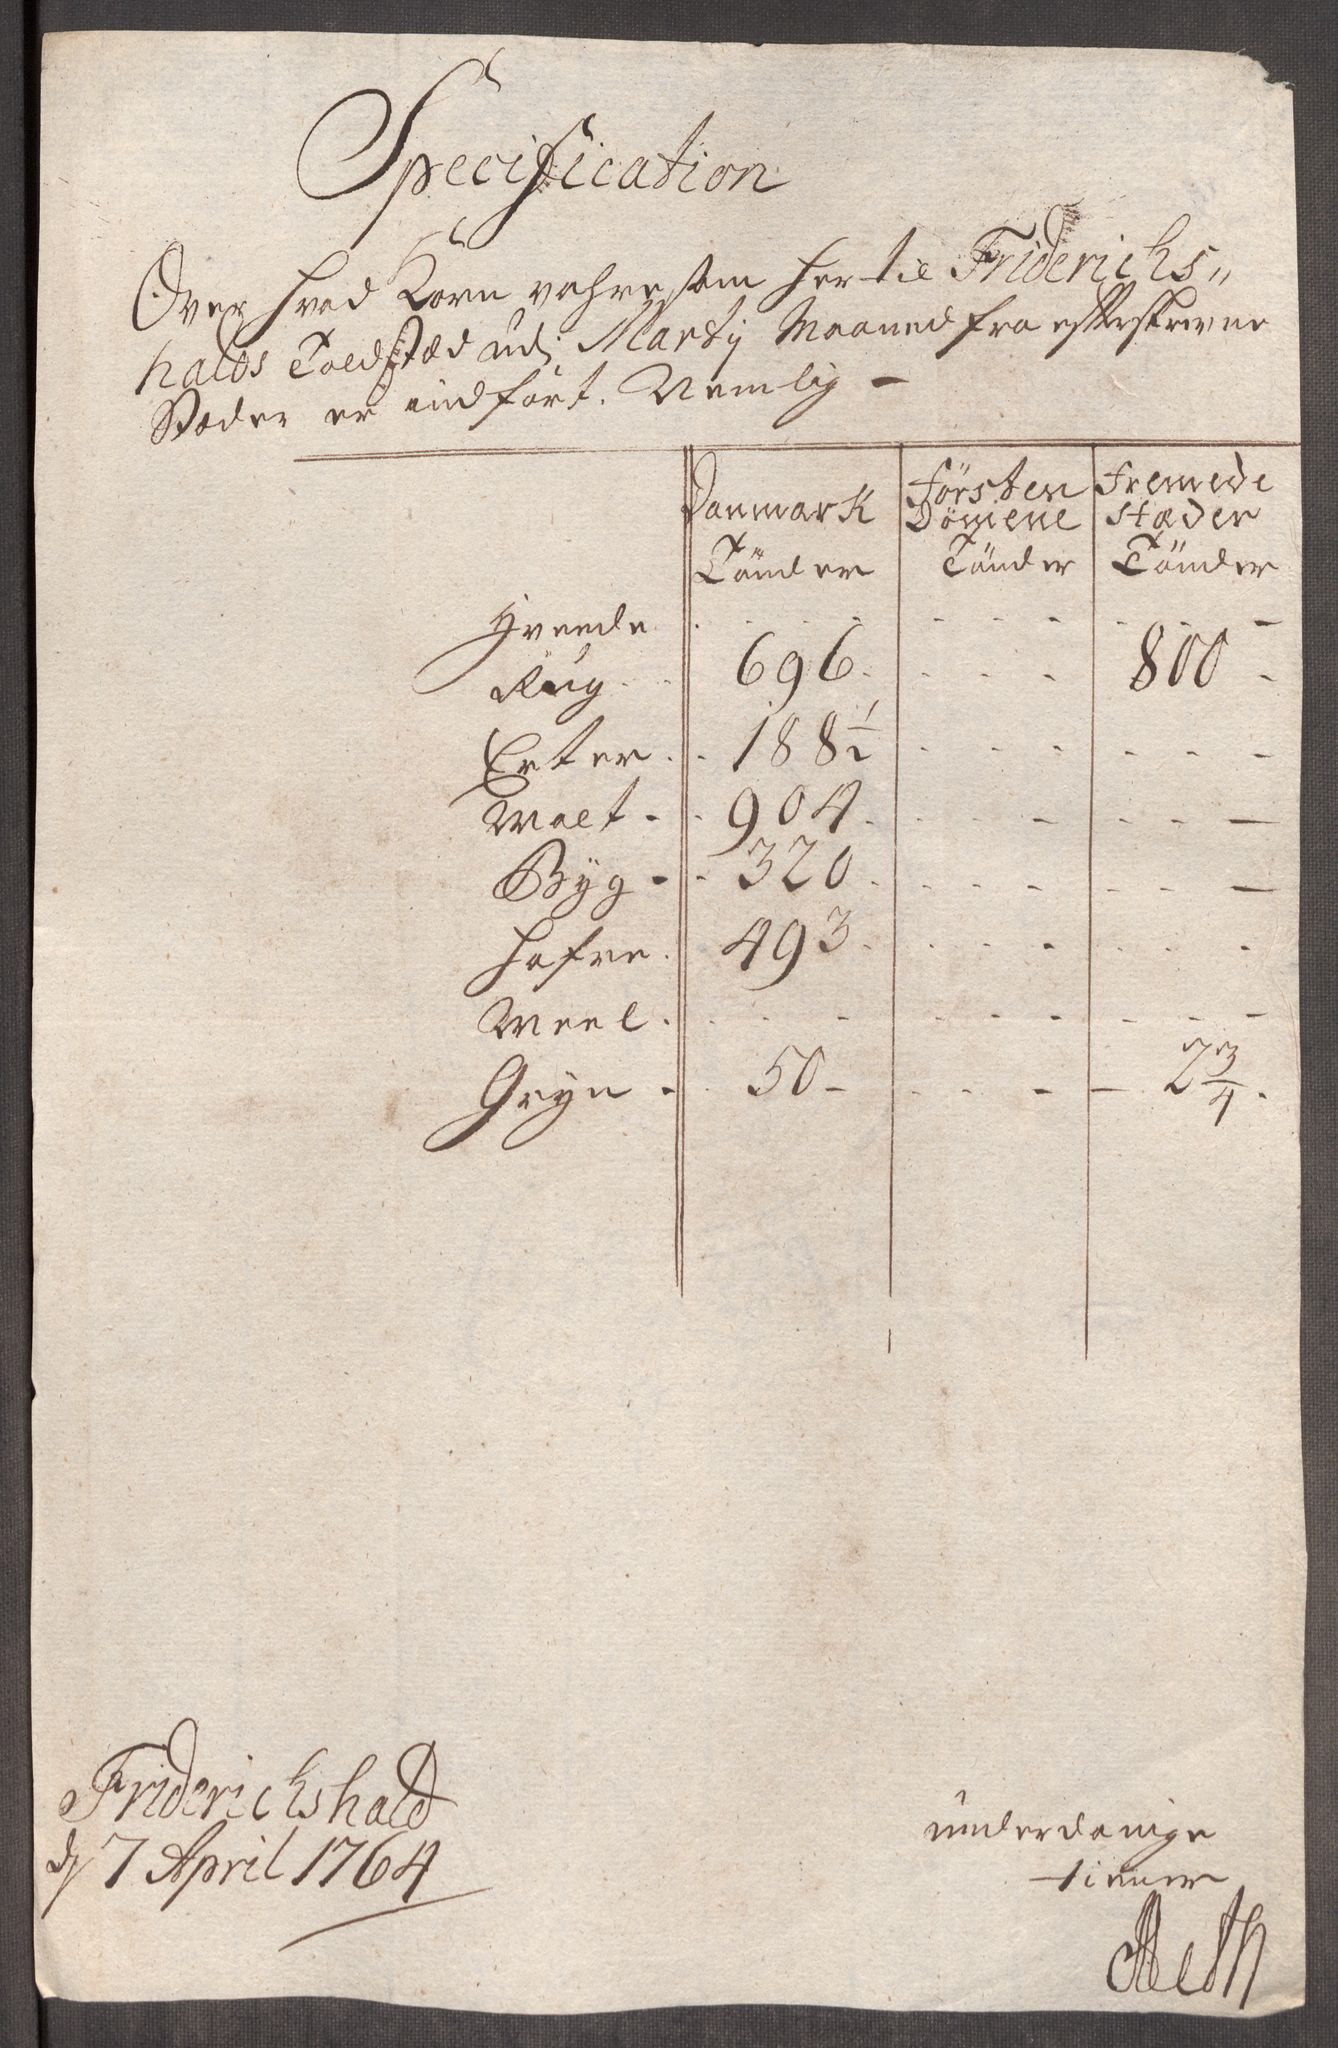 Specification
Over hvad Korn vahre som her til Friderichs„
halds Toldstæd udj Martij Maaned fra efterskrevne
Stæder er indført. Nemlig –
Danmark Førsten Fremede
Dømene stæder
Tønder Tønder Tønder
Hveede . . . . . . . . . . -
Rug . . 696. . . . 800 -
Erter . . 188½ . . . - - - -
Malt - . 904. . . - - - —
Byg - . 320. - - - - - —
Hafre . 493. . . - . . -
Meel . . . - . . - - - - -
Gryn - . 50 - . . - — 2¾.
Friderichshald
d 7 April 1764
underdanige
tienner